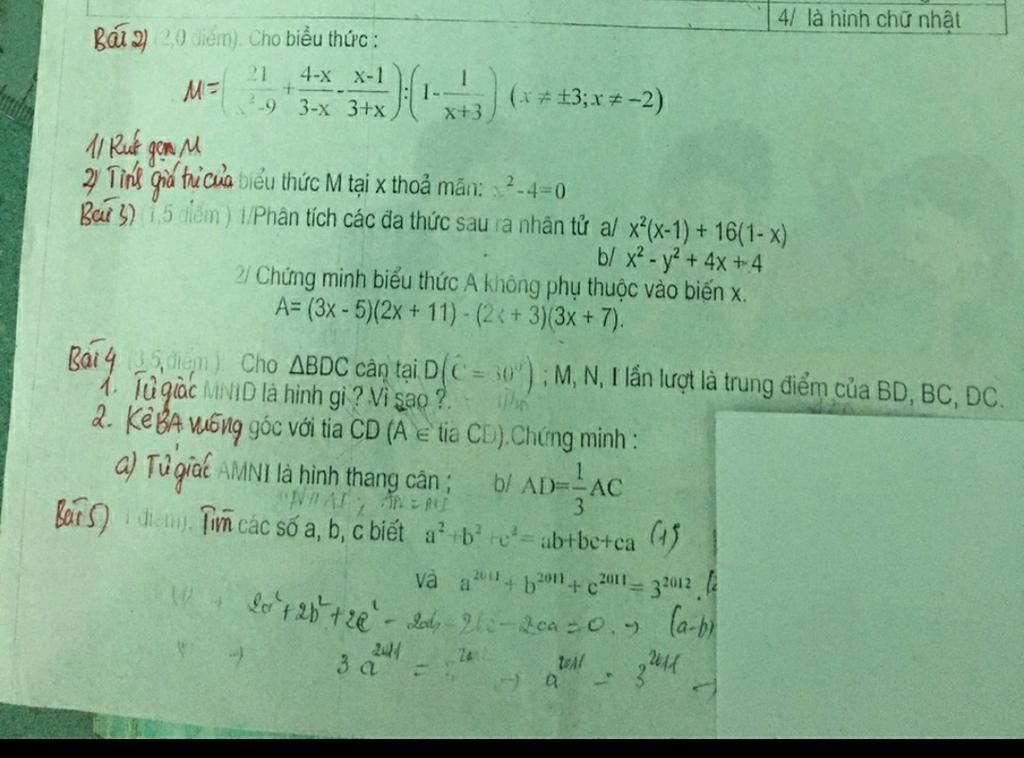 4/ là hình chữ nhật
Bài 2) (2,0 điểm). Cho biểu thức :
M = ( 21/(x²-9) + (4-x)/(3-x) - (x-1)/(3+x) ) : ( 1 - 1/(x+3) ) (x ≠ ±3; x ≠ -2)
1/ Rút gọn M
2/ Tính giá trị của biểu thức M tại x thoả mãn: x²-4=0
Bài 3) (1,5 điểm ) 1/Phân tích các đa thức sau ra nhân tử a/ x²(x-1) + 16(1- x)
b/ x² - y² + 4x + 4
2/ Chứng minh biểu thức A không phụ thuộc vào biến x.
A= (3x - 5)(2x + 11) - (2x + 3)(3x + 7).
Bài 4 (3,5 điểm ) Cho ΔBDC cân tại D(C = 30°) ; M, N, I lần lượt là trung điểm của BD, BC, DC.
1. Tứ giác MNID là hình gì ? Vì sao ?
2. Kẻ BA vuông góc với tia CD (A ∈ tia CD).Chứng minh :
a) Tứ giác AMNI là hình thang cân ; b/ AD=1/3 AC
Bài 5) 1 điểm). Tìm các số a, b, c biết a²+b²+c²= ab+bc+ca (1)
và a²⁰¹¹ + b²⁰¹¹ + c²⁰¹¹ = 3²⁰¹².
2a²+2b²+2c² - 2ab - 2bc - 2ca = 0. → (a-b)
→ 3a²⁰¹¹ = → a²⁰¹¹ = 3²⁰¹¹ →